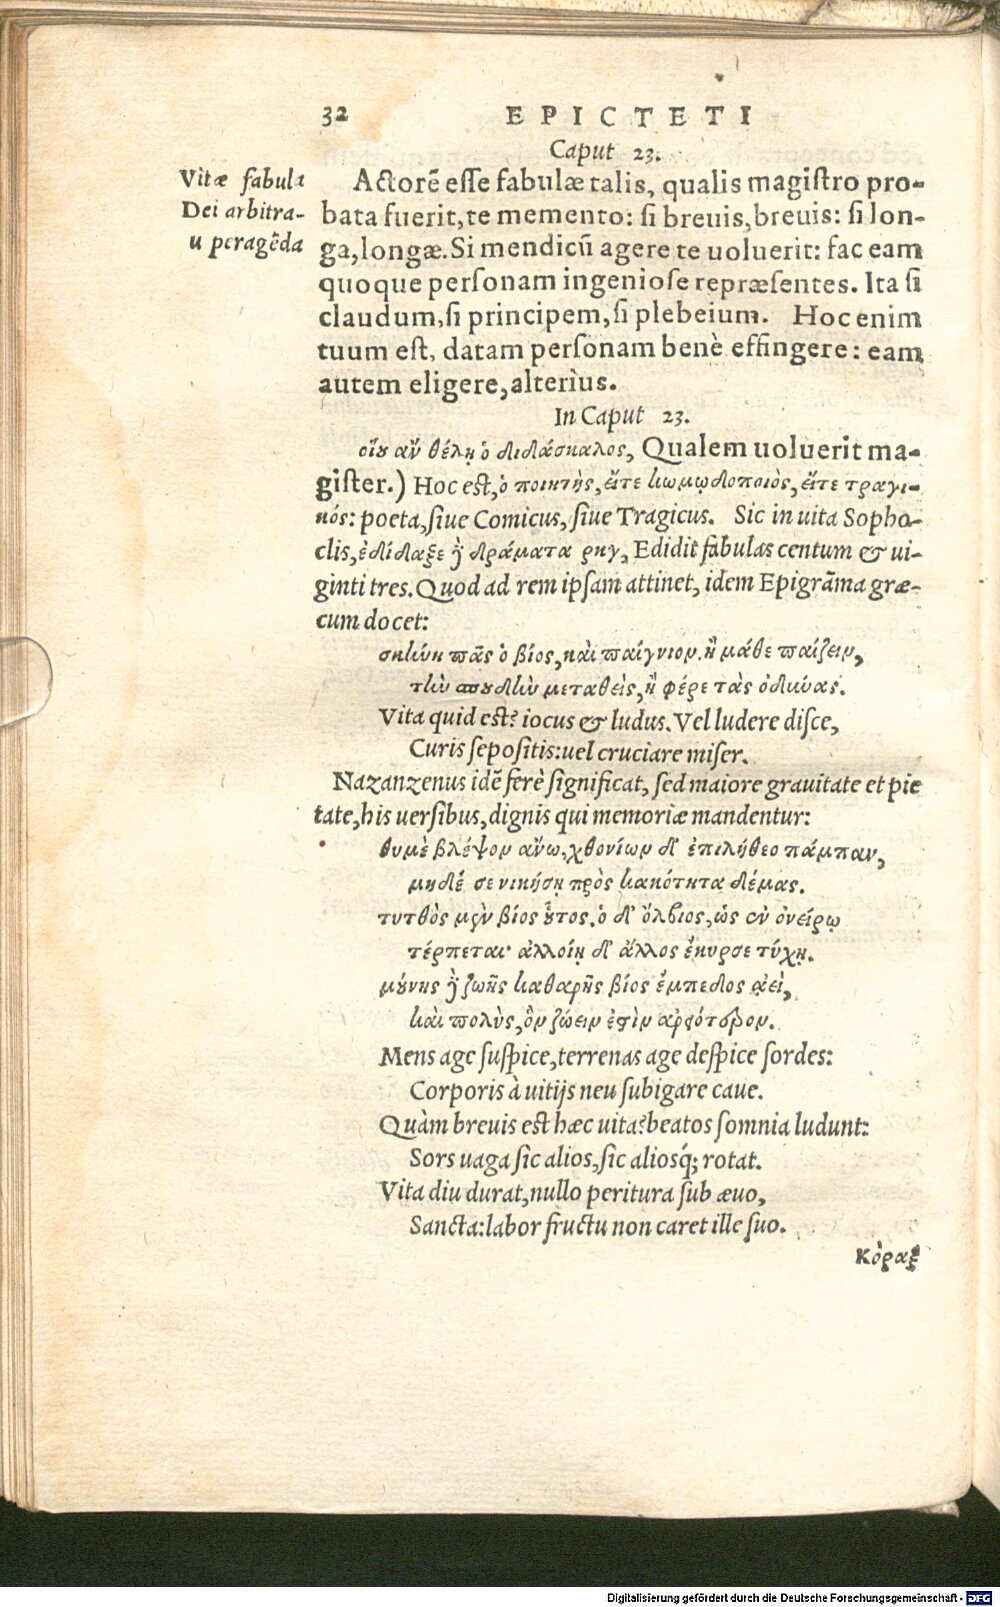 32 EPICTETI
Caput 23.
Vitæ fabula
Dei arbitra-
u peragēda
Actorē esse fabulæ talis, qualis magistro pro-
bata fuerit, te memento: si breuis, breuis: si lon-
ga, longæ. Si mendicū agere te uoluerit: fac eam
quoque personam ingeniose repræsentes. Ita si
claudum, si principem, si plebeium. Hoc enim
tuum est, datam personam benè effingere: eam
autem eligere, alterius.
In Caput 23.
οἵου ἂν θέλῃ ὁ διδάσκαλος, Qualem uoluerit ma-
gister.) Hoc est, ὁ ποιητὴς, εἴτε κωμῳδοποιὸς, εἴτε τραγι-
κός: poeta, siue Comicus, siue Tragicus. Sic in uita Sopho-
clis, ἐδίδαξε ἢ δράματα ρκγ, Edidit fabulas centum & ui-
ginti tres. Quod ad rem ipsam attinet, idem Epigrāma græ-
cum docet:
σκηνὴ πᾶς ὁ βίος, καὶ παίγνιον. ἢ μάθε παίζειν,
τὴν σπουδὴν μεταθεὶς, ἢ φέρε τὰς ὀδύνας.
Vita quid est? iocus & ludus. Vel ludere disce,
Curis sepositis: uel cruciare miser.
Nazanzenus idē ferè significat, sed maiore grauitate et pie
tate, his uersibus, dignis qui memoriæ mandentur:
θυμὲ βλέψον ἄνω, χθονίων δ' ἐπιλήθεο πάμπαν,
μηδέ σε νικήσῃ πρὸς κακότητα δέμας.
τυτθὸς μὲν βίος οὗτος. ὁ δ' ὄλβιος, ὡς ἐν ὀνείρῳ
τέρπεται· ἀλλοίῃ δ' ἄλλος ἔκυρσε τύχῃ.
μούνης ἢ ζωῆς καθαρῆς βίος ἔμπεδος αἰεὶ,
καὶ πολὺς, ὃν ζώειν ἐστὶν
Mens age suspice, terrenas age despice sordes:
Corporis à uitijs neu subigare caue.
Quàm breuis est hæc uita? beatos somnia ludunt:
Sors uaga sic alios, sic aliosq́; rotat.
Vita diu durat, nullo peritura sub æuo,
Sancta: labor fructu non caret ille suo.
Κόραξ
Digitalisierung gefördert durch die Deutsche Forschungsgemeinschaft - DFG